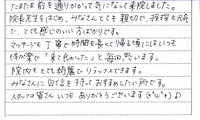 たまたま前を通りかかって気になって来院しました。
院長先生をはじめ、みなさんとても親切で、技術も完璧
で、とても感じのいい方ばかりです。
マッサージも丁寧で時間も長くて帰る頃にはいつも
体が楽で「来て良かった」と毎回思います。
院内もとても綺麗でリラックスできます。
みなさんに自信を持っておすすめしたい所です。
スタッフの皆さん いつも ありがとうございます (*^ω^*)♪